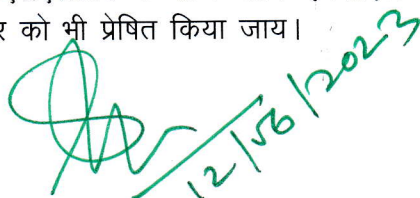 र को भी प्रेषित किया जाय।
12/06/2023